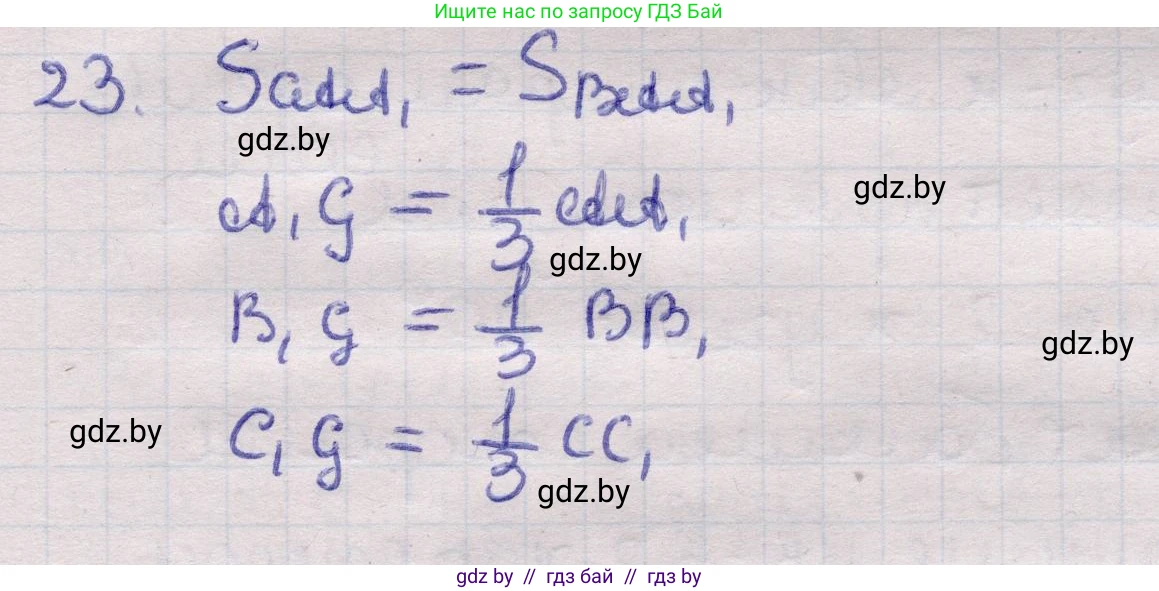 Ищите нас по запросу ГДЗ Бай
23. S_{CAA_1} = S_{BAA_1}
gdz.by
gdz.by
A_1 G = 1/3 AA_1
gdz.by
B_1 G = 1/3 BB_1
gdz.by
gdz.by
C_1 G = 1/3 CC_1
gdz.by
gdz by // гдз бай // гдз by